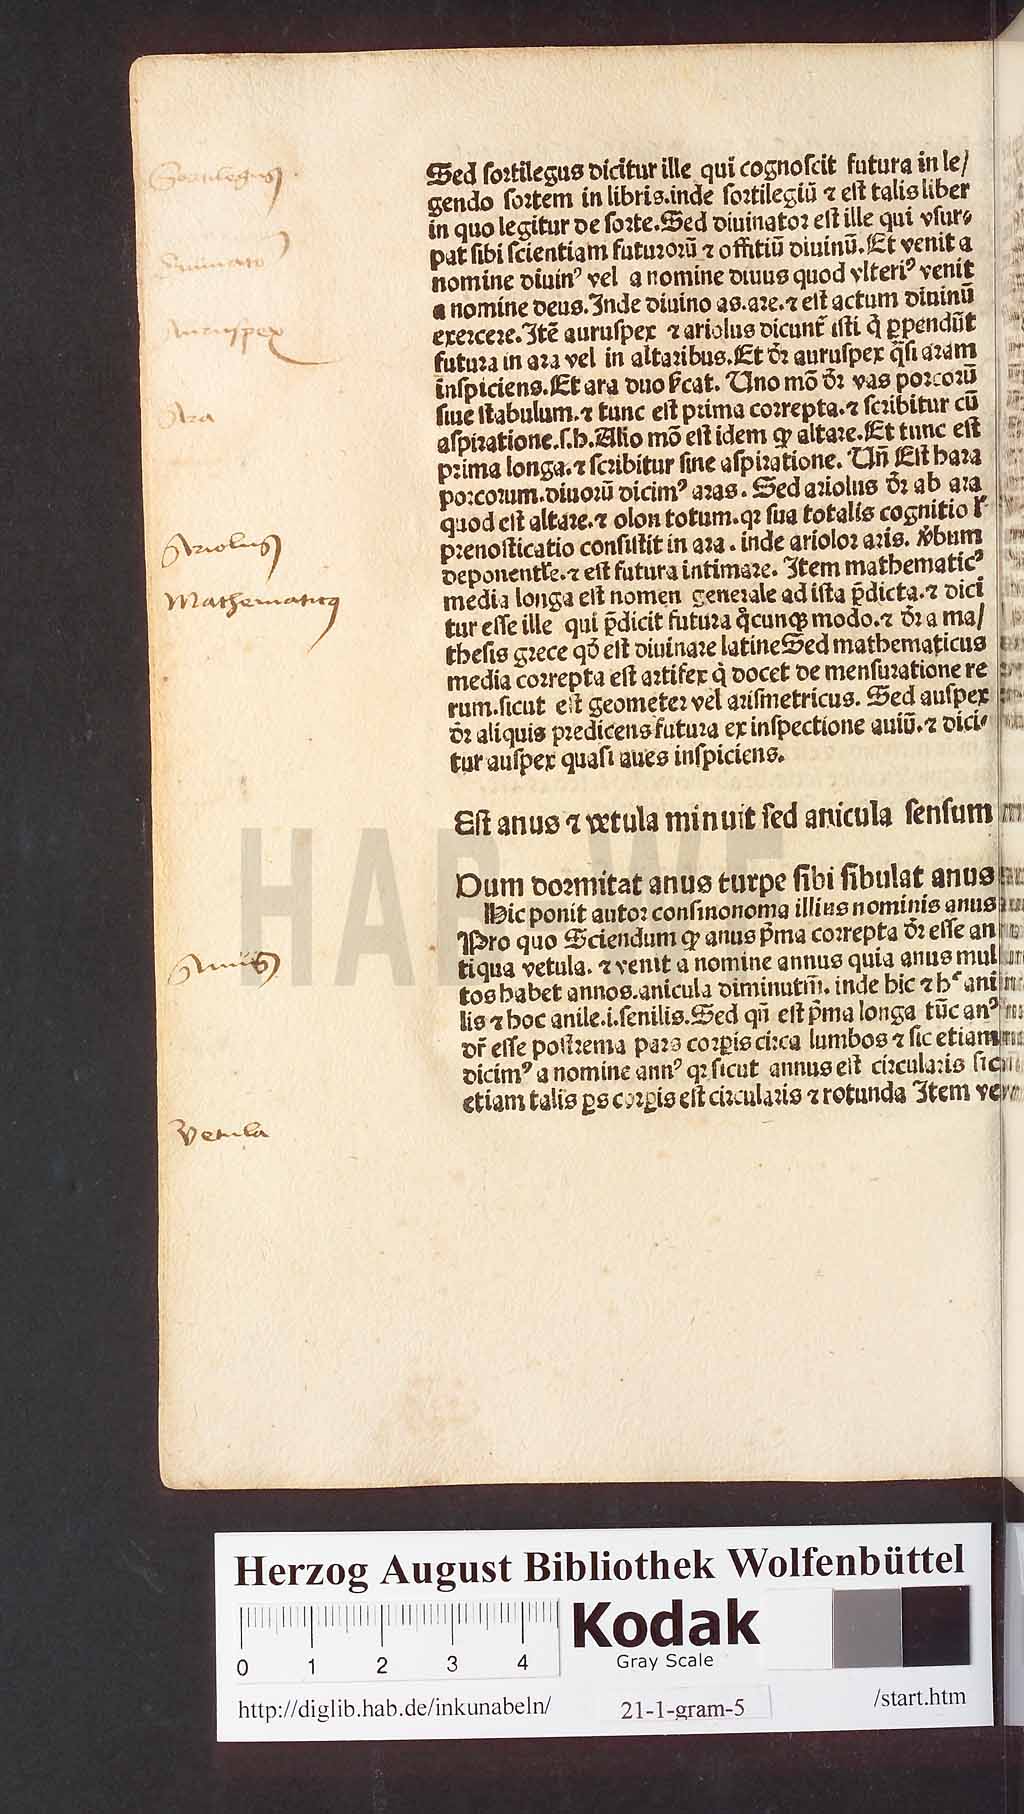 Sortilegus
Sed sortilegus dicitur ille qui cognoscit futura in le/
gendo sortem in libris.inde sortilegiū ⁊ est talis liber
in quo legitur de sorte.Sed diuinator est ille qui vsur⸗
pat sibi scientiam futurorū ⁊ offitiū diuinū.Et venit a
nomine diuinꝰ vel a nomine diuus quod vlteriꝰ venit
a nomine deus.Inde diuino as.are.⁊ est actum diuinū
Auruspex
exercere.Itē auruspex ⁊ ariolus dicunt᷑ isti q̇ ꝑpendūt
futura in ara vel in altaribus.Et dr̄ auruspex q̄si aram
inspiciens.Et ara duo ſ̄cat. Uno mō dr̄ vas porcorū
Ara
siue stabulum.⁊ tunc est prima correpta.⁊ scribitur cū
aspiratione.s.h.Alio mō est idem ꝙ altare.Et tunc est
prima longa.⁊ scribitur sine aspiratione. Un̄ Est hara
porcorum.diuorū dicimꝰ aras. Sed ariolus dr̄ ab ara
quod est altare.⁊ olon totum.qꝛ sua totalis cognitio ł
Ariolus
prenosticatio consistit in ara. inde ariolor aris. v̄bum
deponentłe.⁊ est futura intimare. Item mathematicꝰ
Mathematicꝰ
media longa est nomen generale ad ista p̄dicta.⁊ dici
tur esse ille qui p̄dicit futura q̊cunqꝫ modo.⁊ dr̄ a ma/
thesis grece qd̄ est diuinare latineSed mathematicus
media correpta est artifex q̇ docet de mensuratione re
rum.sicut est geometer vel arismetricus. Sed auspex
dr̄ aliquis predicens futura ex inspectione auiū.⁊ dici⸗
tur auspex quasi aues inspiciens.
Est anus ⁊ vetula minuit sed anicula sensum
Dum dormitat anus turpe sibi sibulat anus
Hic ponit autor consinonoma illius nominis anus
Pro quo Sciendum ꝙ anus p̄ma correpta dr̄ esse an
Anus
tiqua vetula. ⁊ venit a nomine annus quia anus mul
tos habet annos.anicula diminutm̄. inde hic ⁊ hͨ ani
lis ⁊ hoc anile.i.senilis.Sed qn̄ est p̄ma longa tūc anꝰ
dr̄ esse postrema pars corꝑis circa lumbos ⁊ sic etiam
dicimꝰ a nomine annꝰ qꝛ sicut annus est circularis sic
etiam talis ꝑs corꝑis est circularis ⁊ rotunda Item ve
Vetula
HAB WF
Herzog August Bibliothek Wolfenbüttel
0 1 2 3 4
Kodak
Gray Scale
http://diglib.hab.de/inkunabeln/
21-1-gram-5
/start.htm